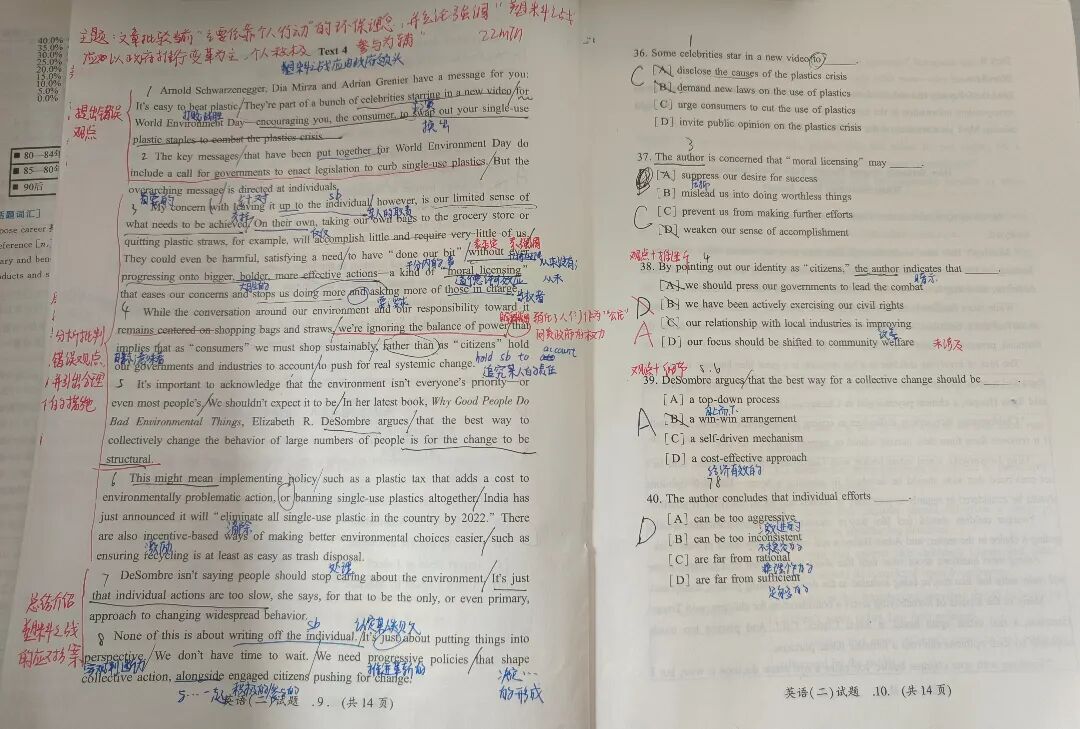 40.0%
35.0%
30.0%
25.0%
20.0%
15.0%
10.0%
5.0%
0.0%
80—84
85—80
90后
话题词汇]
pose career
eference [n.
ary and ben
ducts and s
主题:文章批驳当前"主要依靠个人行动"的环保理念,并立论强调"塑料之战
应以政府推行变革为主,个人积极参与为辅"
22min
Text 4
塑料之战应由政府领头
提出错误
观点
1 Arnold Schwarzenegger, Dia Mirza and Adrian Grenier have a message for you:
It's easy to beat plastic. They're part of a bunch of celebrities starring in a new video for
World Environment Day—encouraging you, the consumer, to swap out your single-use
plastic staples to combat the plastics crisis.
换出
2 The key messages that have been put together for World Environment Day do
include a call for governments to enact legislation to curb single-use plastics. But the
overarching message is directed at individuals.
3 My concern with leaving it up to the individual, however, is our limited sense of
what needs to be achieved. On their own, taking our own bags to the grocery store or
quitting plastic straws, for example, will accomplish little and require very little of us.
They could even be harmful, satisfying a need to have "done our bit" without ever
progressing onto bigger, bolder, more effective actions—a kind of "moral licensing"
that eases our concerns and stops us doing more and asking more of those in charge.
道德许可效应
从未
当权者
分析批判
错误观点
并引出合理
的措施
4 While the conversation around our environment and our responsibility toward it
remains centered on shopping bags and straws, we're ignoring the balance of power that
implies that as "consumers" we must shop sustainably, rather than as "citizens" hold
our governments and industries to account to push for real systemic change.
hold sb to account
追究某人的责任
5 It's important to acknowledge that the environment isn't everyone's priority—or
even most people's. We shouldn't expect it to be. In her latest book, Why Good People Do
Bad Environmental Things, Elizabeth R. DeSombre argues that the best way to
collectively change the behavior of large numbers of people is for the change to be
structural.
6 This might mean implementing policy such as a plastic tax that adds a cost to
environmentally problematic action, or banning single-use plastics altogether. India has
just announced it will "eliminate all single-use plastic in the country by 2022." There
消除
are also incentive-based ways of making better environmental choices easier, such as
激励
ensuring recycling is at least as easy as trash disposal.
处理
总结介绍
塑料之战
的应对方案
7 DeSombre isn't saying people should stop caring about the environment. It's just
that individual actions are too slow, she says, for that to be the only, or even primary,
approach to changing widespread behavior.
8 None of this is about writing off the individual. It's just about putting things into
perspective. We don't have time to wait. We need progressive policies that shape
collective action, alongside engaged citizens pushing for change.
英语(二)试题 .9. (共14页)
36. Some celebrities star in a new video to ______.
C
[A] disclose the causes of the plastics crisis
[B] demand new laws on the use of plastics
[C] urge consumers to cut the use of plastics
[D] invite public opinion on the plastics crisis
3
37. The author is concerned that "moral licensing" may ______.
[A] suppress our desire for success
[B] mislead us into doing worthless things
C
[C] prevent us from making further efforts
[D] weaken our sense of accomplishment
4
38. By pointing out our identity as "citizens," the author indicates that ______.
暗示
[A] we should press our governments to lead the combat
D
[B] we have been actively exercising our civil rights
A
[C] our relationship with local industries is improving
[D] our focus should be shifted to community welfare
未涉及
5.6
39. DeSombre argues that the best way for a collective change should be ______.
[A] a top-down process
A
[B] a win-win arrangement
[C] a self-driven mechanism
[D] a cost-effective approach
经济有效的
78
40. The author concludes that individual efforts ______.
D
[A] can be too aggressive
[B] can be too inconsistent
[C] are far from rational
[D] are far from sufficient
足够多的
英语(二)试题 .10. (共14页)